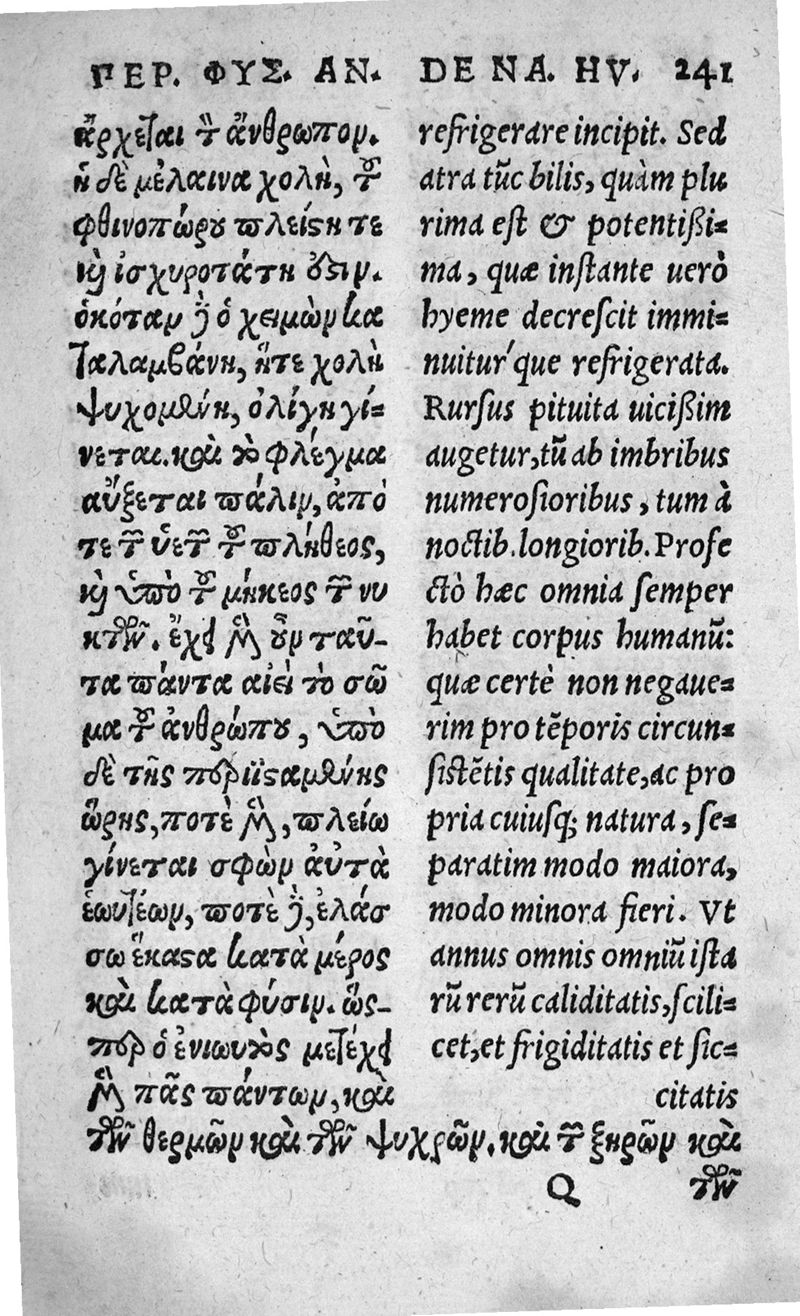 ΠΕΡ. ΦΥΣ. ΑΝ.
ἄρχεται τὸν ἄνθρωπον.
ἡ δὲ μέλαινα χολὴ, τοῦ
φθινοπώρου πλείστη τε
καὶ ἰσχυροτάτη ἐστιν.
ὁκόταν δὲ ὁ χειμὼν κα
ταλαμβάνῃ, ἥτε χολὴ
ψυχομένη, ὀλίγη γί=
νεται. καὶ τὸ φλέγμα
αὔξεται πάλιν, ἀπό
τε τῶν ὑετῶν τοῦ πλήθεος,
καὶ ὑπὸ τοῦ μήκεος τῶν νυ
κτῶν. ἔχει μὲν οὖν ταῦ-
τα πάντα αἰεὶ τὸ σῶ
μα τοῦ ἀνθρώπου, ὑπὸ
δὲ τῆς περιϊσταμένης
ὥρης, ποτὲ μὲν, πλείω
γίνεται σφῶν αὐτὰ
ἑωυτέων, ποτὲ δὲ, ἐλάσ
σω ἕκαστα κατὰ μέρος
καὶ κατὰ φύσιν. ὥς-
περ ὁ ἐνιαυτὸς μετέχει
μὲν πᾶς πάντων, καὶ
τῶν θερμῶν καὶ τῶν ψυχρῶν. καὶ τῶν ξηρῶν καὶ
DE NA. HV. 241
refrigerare incipit. Sed
atra tũc bilis, quàm plu
rima est & potentißi=
ma, quæ instante uerò
hyeme decrescit immi=
nuitur'que refrigerata.
Rursus pituita uicißim
augetur, tũ ab imbribus
numerosioribus, tum à
noctib. longiorib. Profe
ctò hæc omnia semper
habet corpus humanũ:
quæ certè non negaue=
rim pro tẽporis circun=
sistẽtis qualitate, ac pro
pria cuiusq; natura, se=
paratim modo maiora,
modo minora fieri. Vt
annus omnis omniũ ista
rũ rerũ caliditatis, scili=
cet, et frigiditatis et sic=
citatis
Q τῶν